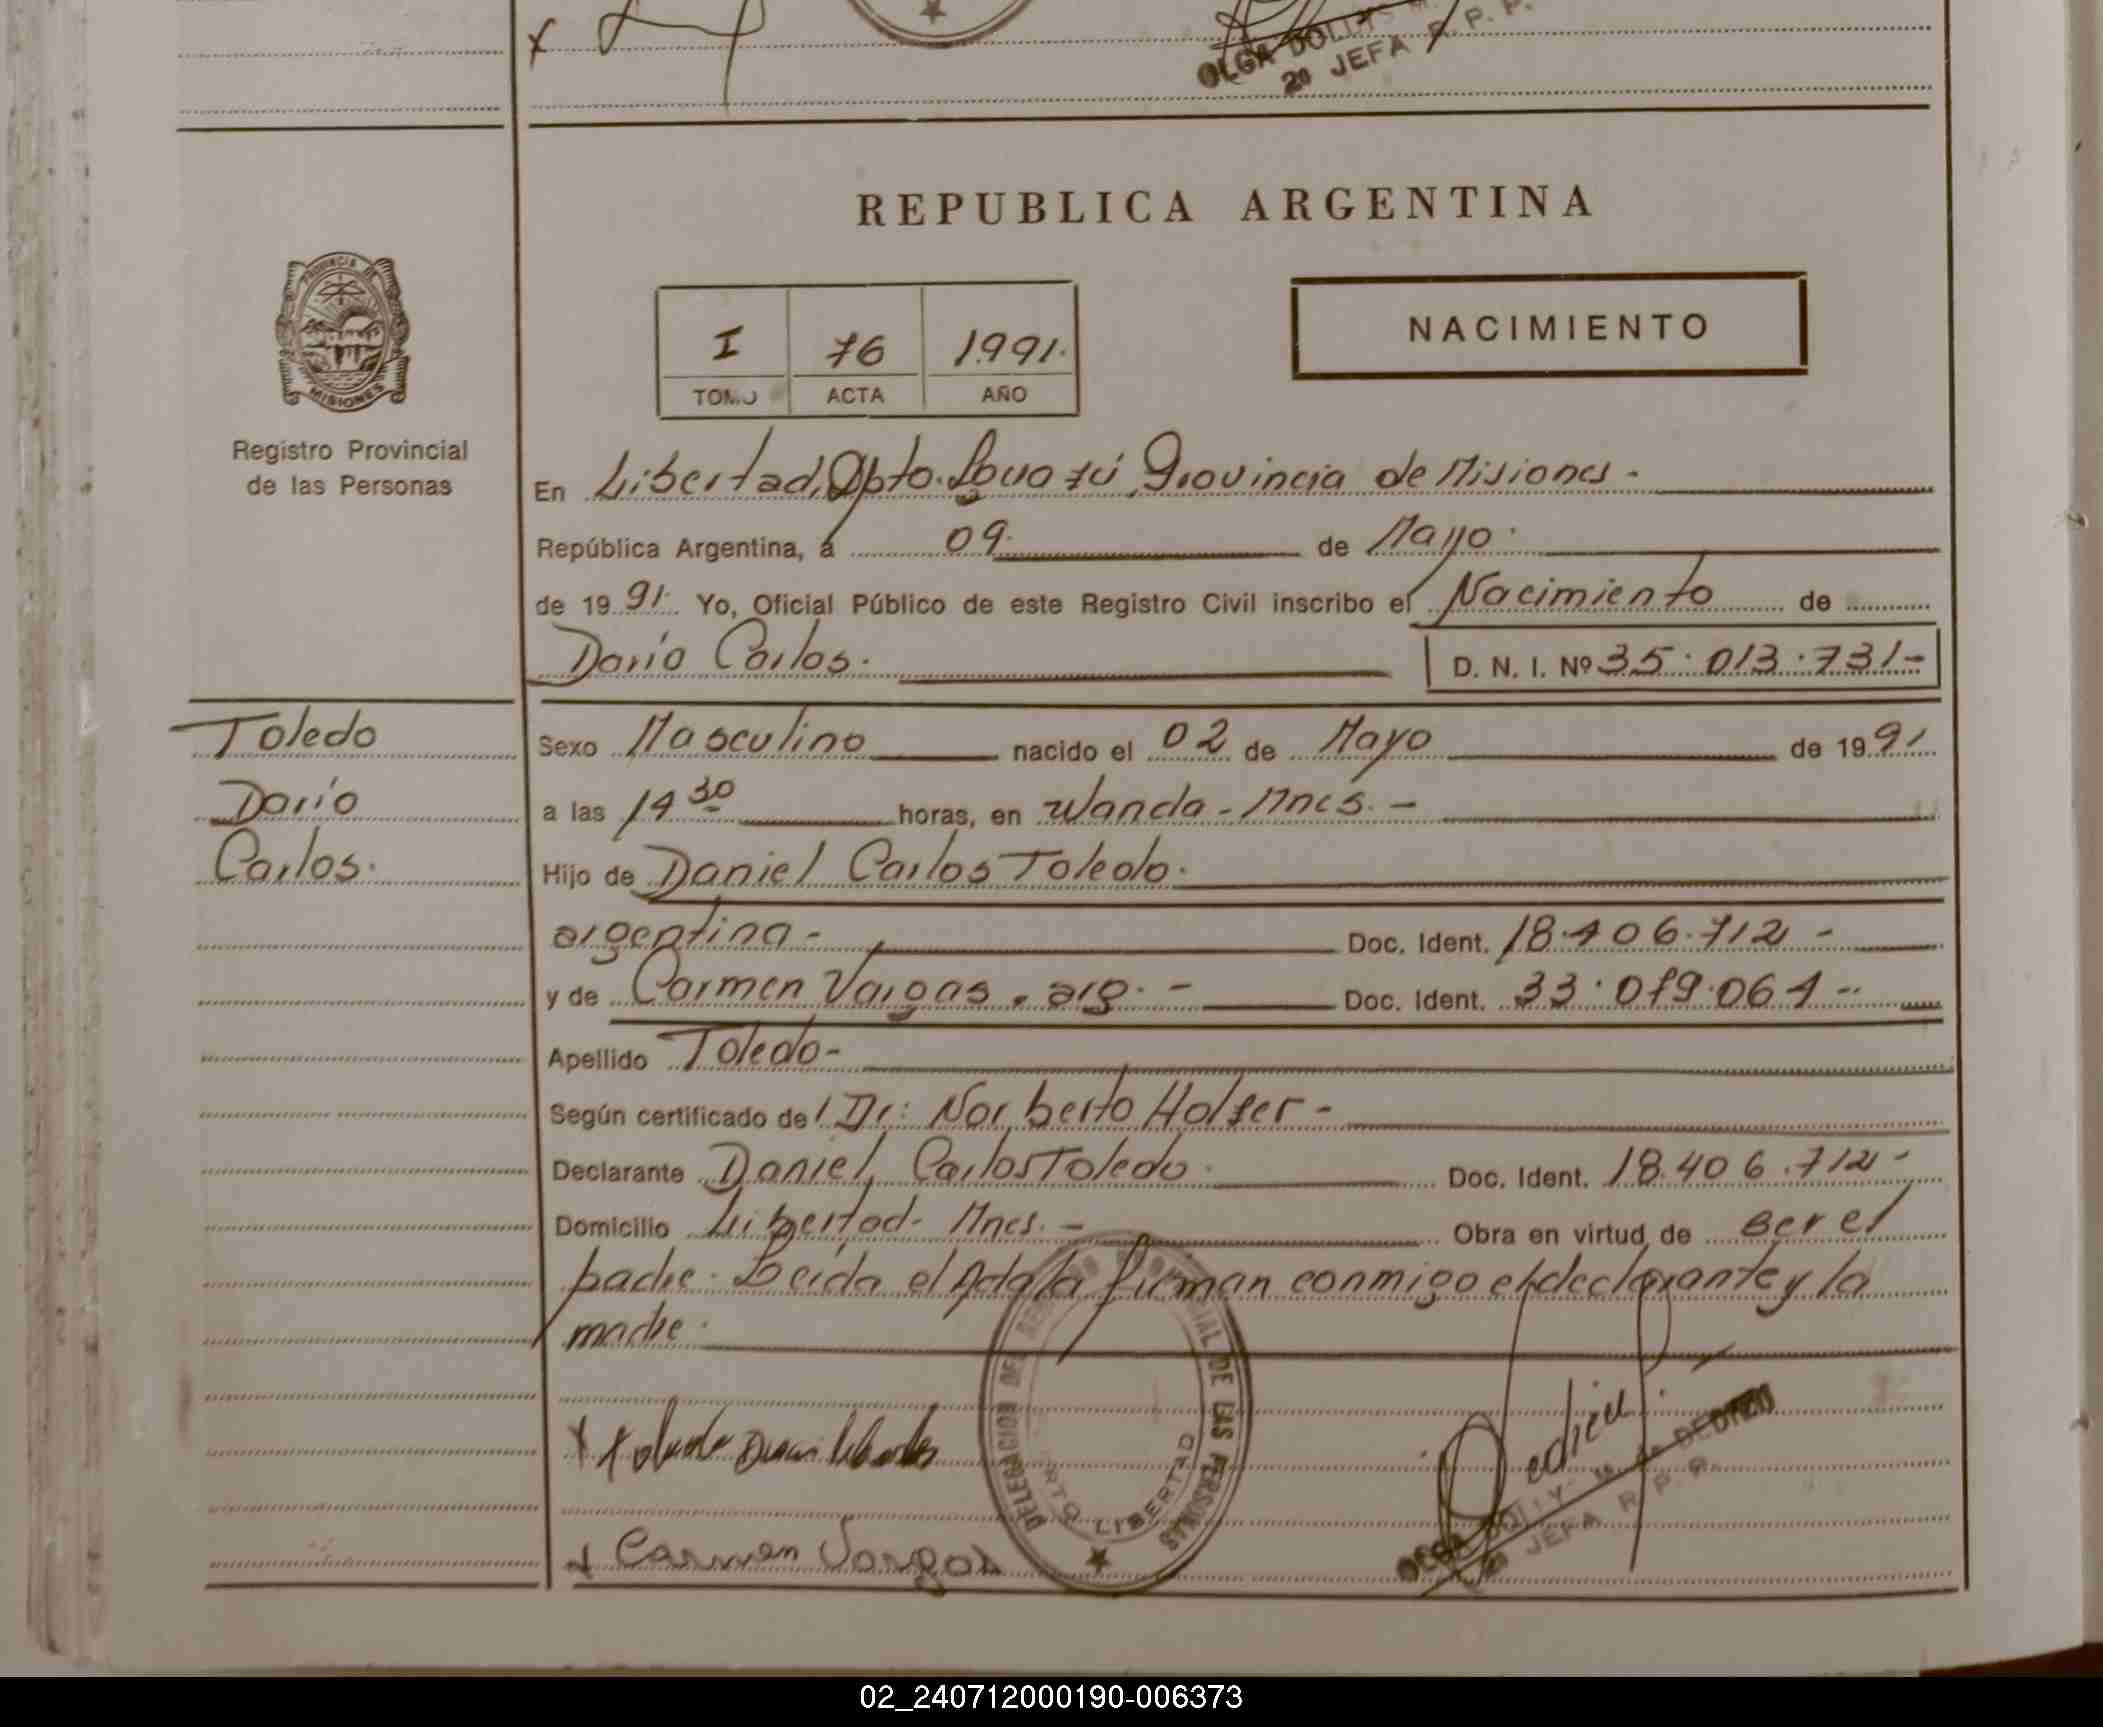 OLGA DOLLYS M.
2º JEFA R. P. P.
REPUBLICA ARGENTINA
PROVINCIA DE
MISIONES
I 76 1991.
TOMO ACTA AÑO
NACIMIENTO
Registro Provincial
de las Personas
En Libertad, Dpto. Iguazú, Provincia de Misiones -
República Argentina, a 09. de Mayo.
de 19 91. Yo, Oficial Público de este Registro Civil inscribo el Nacimiento de
Darío Carlos. D. N. I. Nº 35.013.731-
Toledo
Darío
Carlos.
Sexo Masculino nacido el 02 de Mayo de 19 91
a las 14 30 horas, en Wanda - Mnes. -
Hijo de Daniel Carlos Toledo.
argentina - Doc. Ident. 18.406.712 -
y de Carmen Vargas. arg. - Doc. Ident. 33.079.064 -
Apellido Toledo -
Según certificado del Dr: Norberto -
Declarante Daniel Carlos Toledo. Doc. Ident. 18.406.712 -
Domicilio Libertad - Mnes. - Obra en virtud de ser el
padre. Leída el Acta la firman conmigo el declarante y la
madre.
DELEGACION DEL REGISTRO PROVINCIAL DE LAS PERSONAS
PTO LIBERTAD
Carmen Vargas
OLGA DOLLYS M. de DEDIEU
2º JEFA R. P. P.
02_240712000190-006373